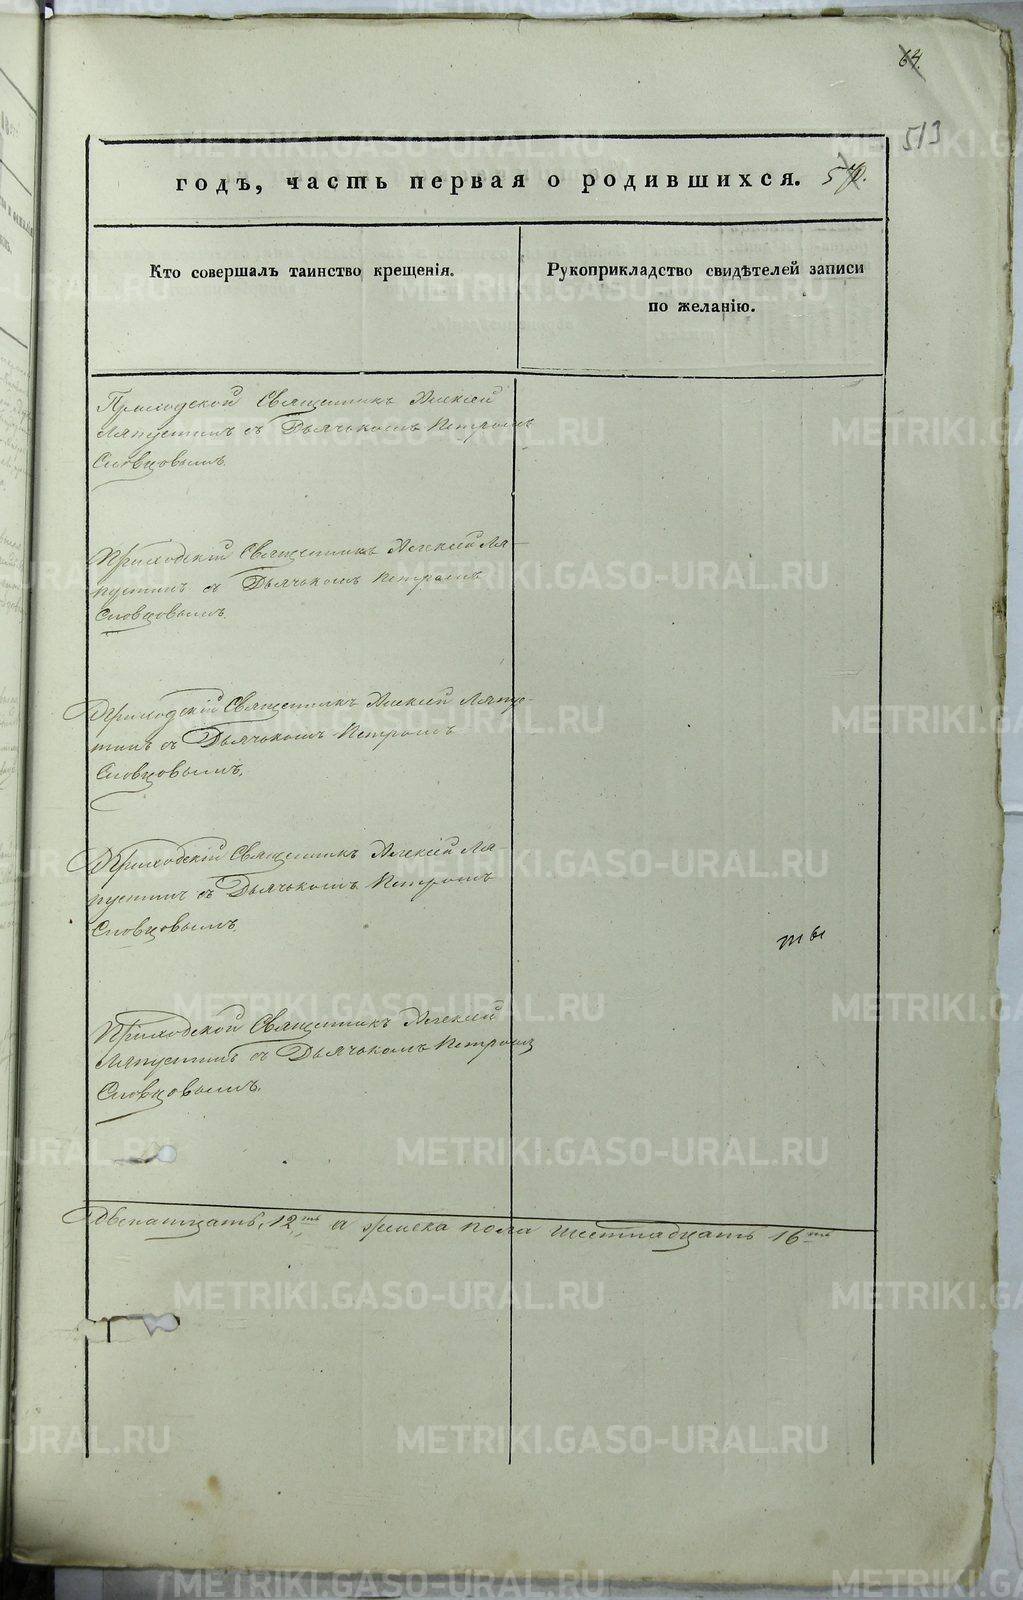 64.
513
годъ, часть первая о родившихся. 57.
Кто совершалъ таинство крещенія.
Рукоприкладство свидѣтелей записи
по желанію.
Приходской Священникъ Алексѣй
Ляпустинъ съ Дьячькомъ Петромъ
Словцовымъ.
Приходскій Священникъ Алексѣй Ля-
пустинъ съ Дьячькомъ Петромъ
Словцовымъ.
Приходскій Священникъ Алексѣй Ляпус-
тинъ съ Дьячькомъ Петромъ
Словцовымъ.
Приходскій Священникъ Алексѣй Ля-
пустинъ съ Дьячькомъ Петромъ
Словцовымъ.
ты
Приходской Священникъ Алексѣй
Ляпустинъ съ Дьячькомъ Петромъ
Словцовымъ.
Двенатцать, 12ть а женска пола шестнадцать 16ть
METRIKI.GASO-URAL.RU